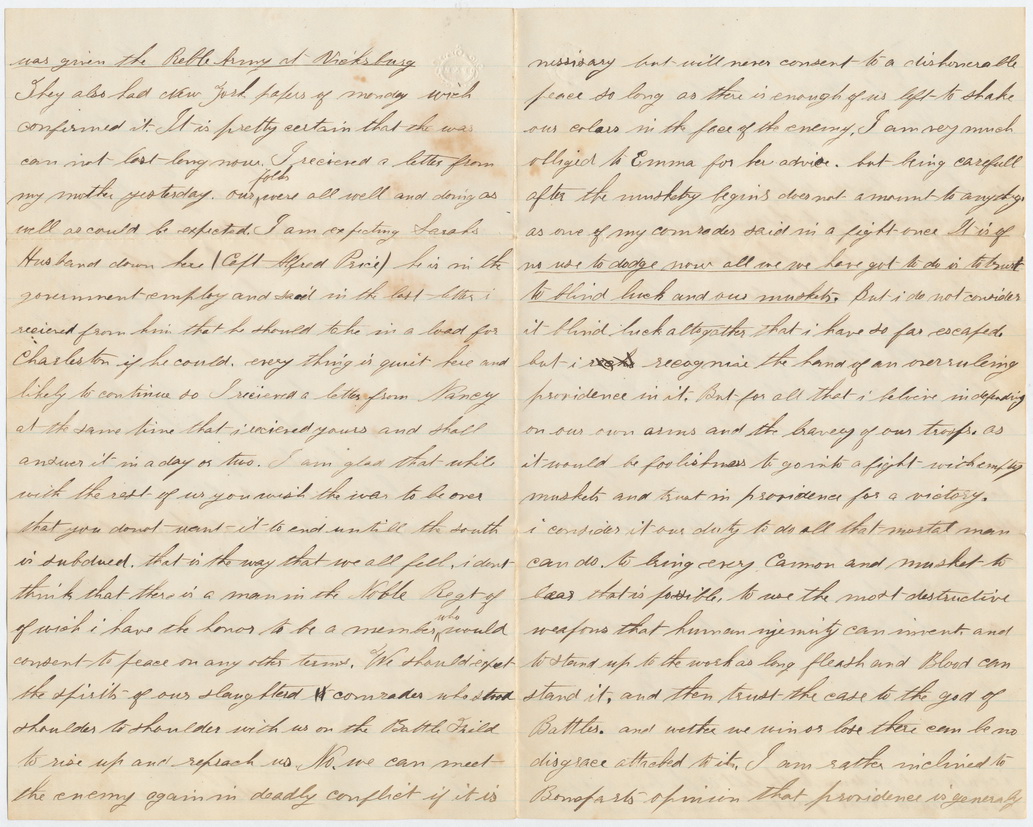 was given the Reble Army at Vicksburg
They also had New York papers of monday wich
confirmed it. It is pretty certain that the war
can not last long now. I recieved a letter from
folks
my mother yesterday. our were all well and doing as
well as could be expected. I am expecting Sarahs
Husband down here (Capt Alfred Price) he is in the
government employ and said in the last letter i
recieved from him that he should take in a load for
Charleston if he could. every thing is quiet here and
likely to continue so I recieved a letter from Nancy
at the same time that i recieved yours and shall
answer it in a day or two. I am glad that while
with the rest of us you wish the war to be over
that you donot want it to end untill the south
is subdued. that is the way that we all fell. i dont
think that there is a man in the Noble Regt of
who
of wich i have the honor to be a member would
consent to peace on any other terms. We should expect
the spirits of our slaughterd comrades who stood
shoulder to shoulder with us on the Battle Frield
to rise up and reprach us. No. we can meet
the enemy again in deadly conflict if it is
nissisary but will never consent to a dishonerable
peace so long as there is enough of us left to shake
our colars in the face of the enemy. I am very much
obliged to Emma for her advice. but being carefull
after the musketry begins does not amount to anything
as one of my comrades said in a fight once It is of
no use to dodge now all we we have got to do is to trust
to blind luck and our muskets. But i do not consider
it blind luck altogather that i have so far escaped.
but i recognise the hand of an overruleing
providence in it. But for all that i beleive in depending
on our own arms and the bravery of our troops. as
it would be foolishness to go into a fight with empty
muskets and trust in providence for a victory.
i consider it our duty to do all that mortal man
can do. to bring every Cannon and musket to
bear that is possible. to use the most destructive
weapons that human injenuity can invent. and
to stand up to the work as long fleash and Blood can
stand it. and then trust the case to the god of
Battles. and wether we win or lose there can be no
disgrace attached to it. I am rather inclined to
Bonaparts opinion that providence is generaly